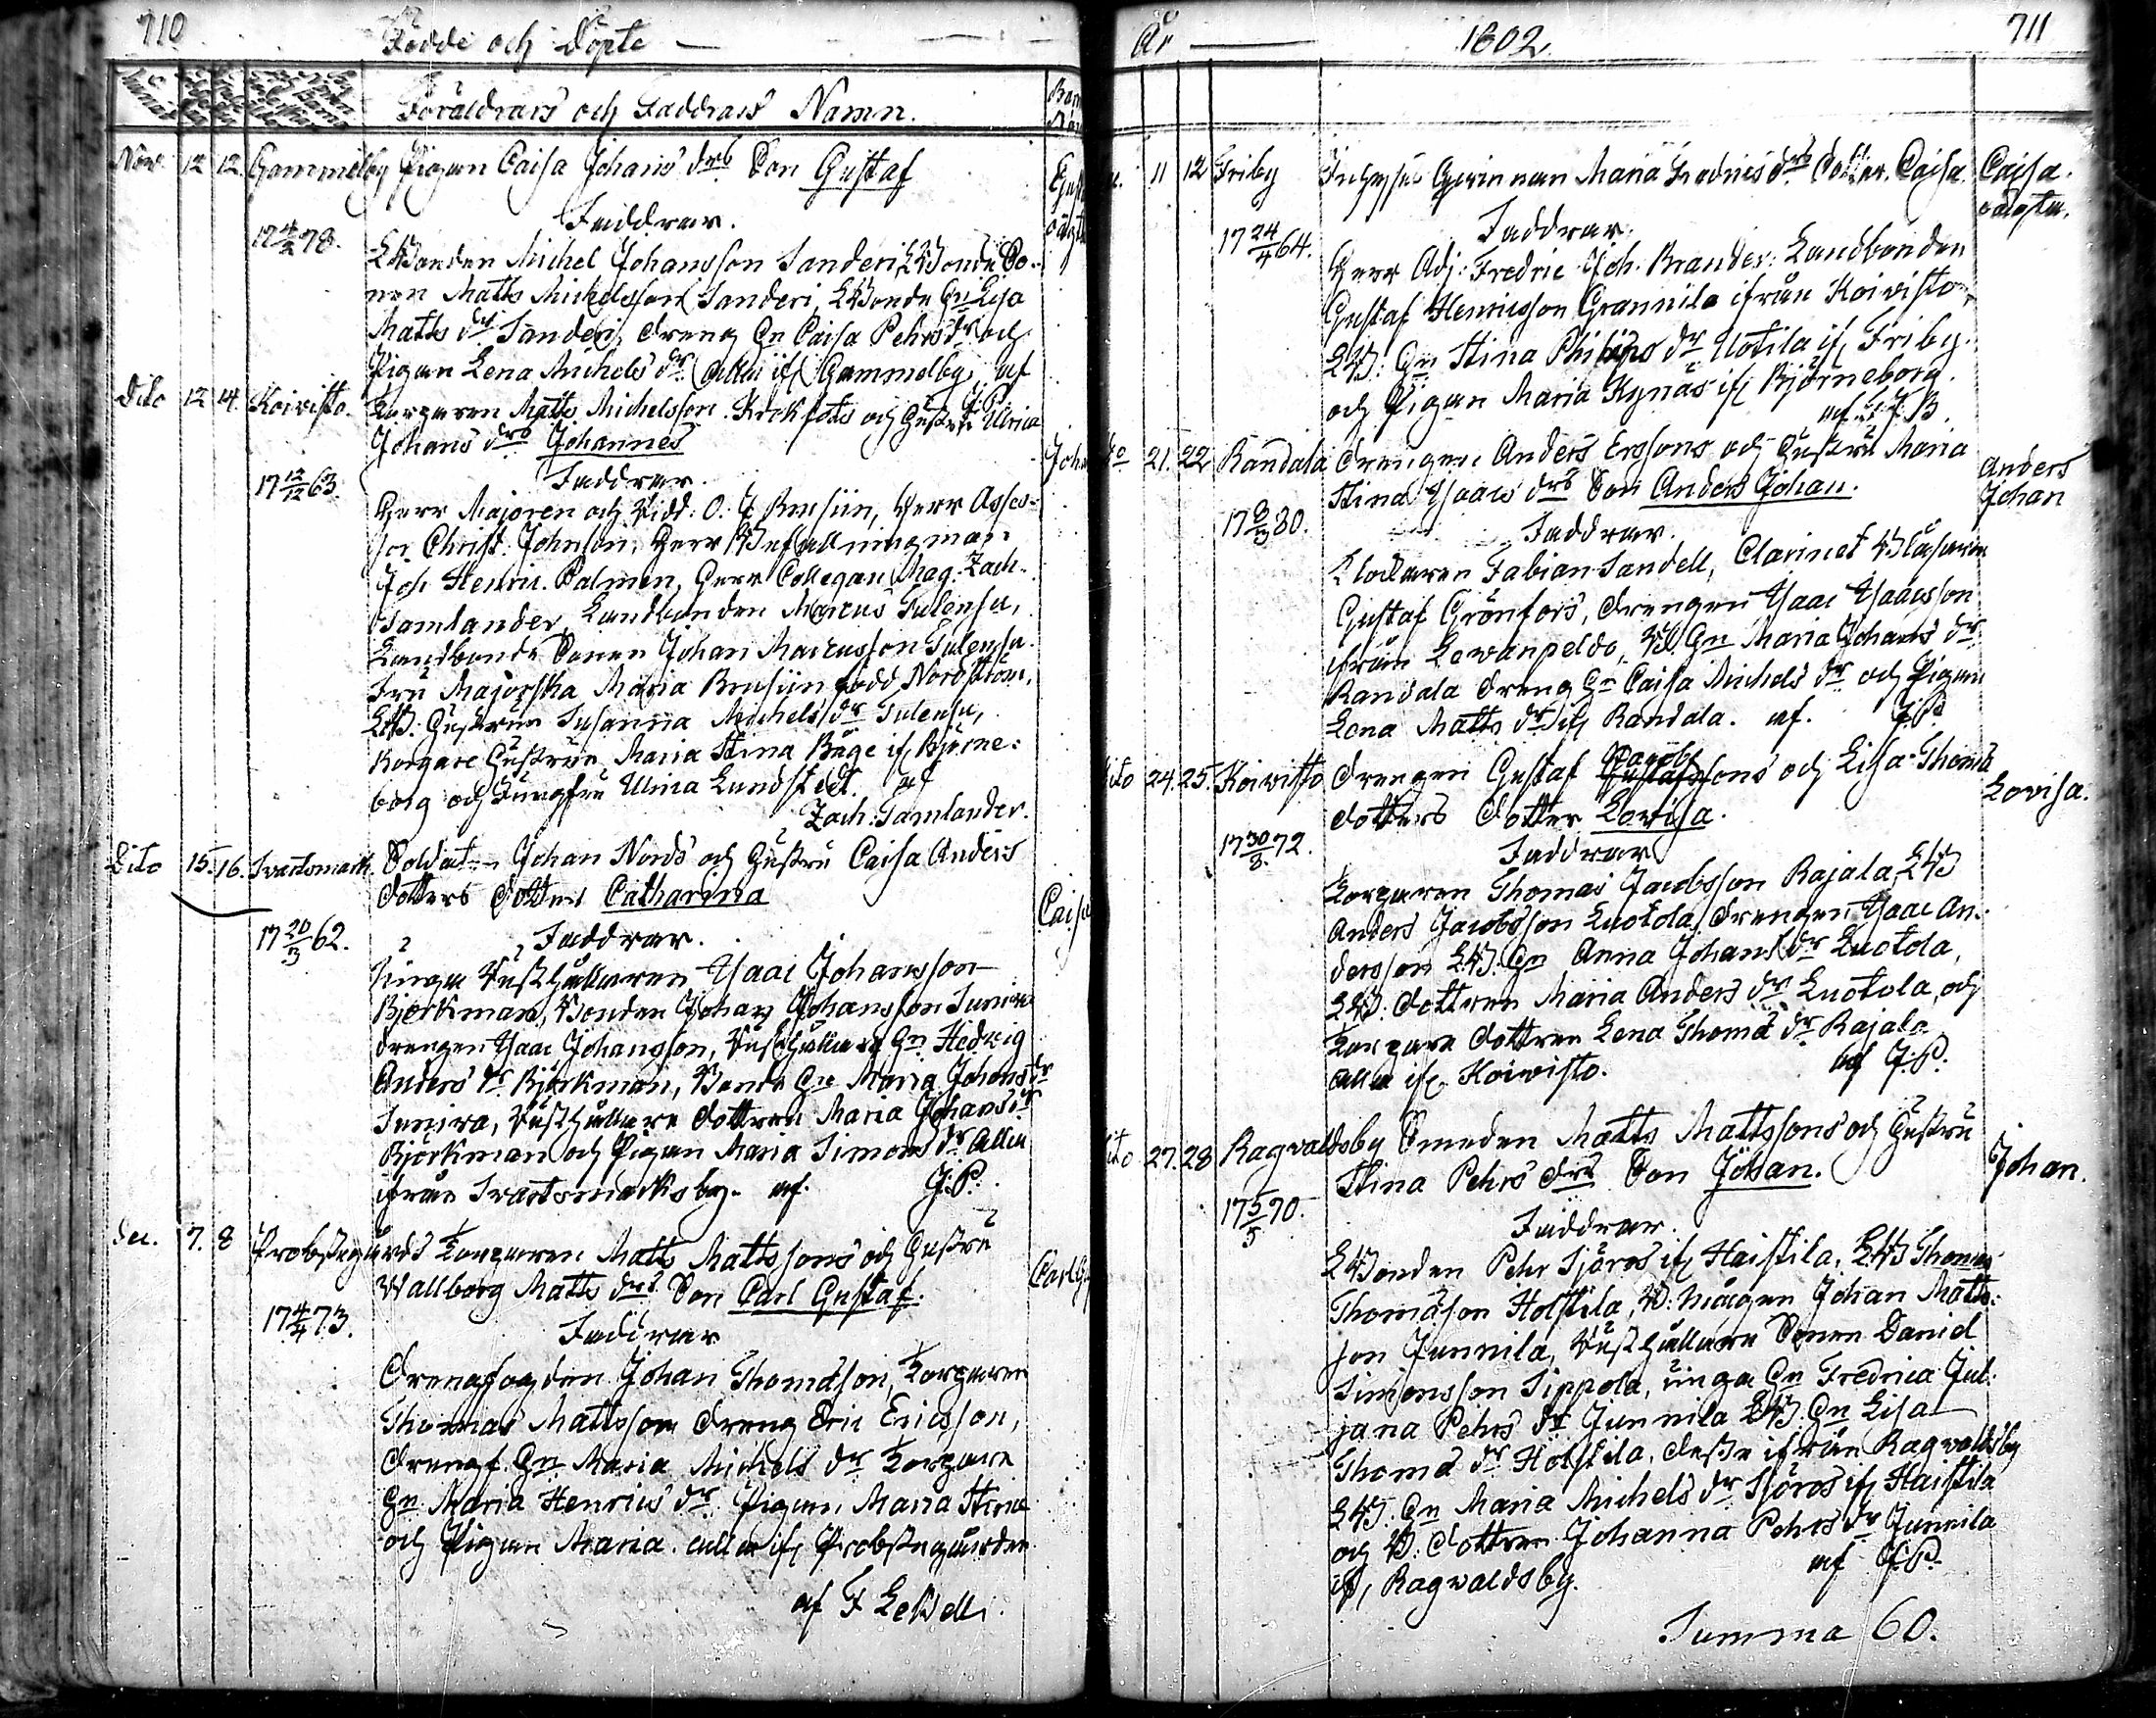 710
Födde och Döpte
Föräldrars och Faddrars Namn.
Nov. 12 12. Gammelby Pigan Caisa Johans drs Son Gustaf
Faddrar.
17 4/2 78.
LBonden Michel Johansson Sanderi, LBonde So-
nen Matts Michelsson Sanderi, LBonde Hu Lisa
Matts dr Sanderi, dreng Hu Caisa Pehrs dr och
Pigan Lena Michels dr alla if Gammelby. af
J:P.
Dito 12 14. Koivisto. Torparen Matts Michelsson Krokfots och Hustru Ulrica
Johans drs Johannes
17 12/12 63.
Faddrar.
Herr Majoren och Ridd: O: J Brusiin, Herr Asses-
sor Christ: Johnson, Herr Befallningsman
Joh Henric Palmen, Herr Collegan Mag. Zach.
Samlander, Landbonden Marcus Tulensu,
Landbonde Sonen Johan Marcusson Tulensu.
Fru Majorska Maria Brusiin född Nordström,
LB: Hustrun Susanna Michels dr Tulensu,
Borgare Hustrun Maria Stina Båge if Björne-
borg och Jungfru Ulrica Lundstedt. af
Zach: Samlander.
Dito 15. 16. Svartsmark. Soldat Johan Nords och Hustru Caisa Anders
dotters dotter Catharina
Caisa
17 20/3 62.
Faddrar.
Unga Rusthållaren Isaac Johansson
Björkman, Bonden Johan Johansson Junira
drengen Isaac Johansson, Rusthållare Hu Hedvig
Anders dr Björkman, Bonde Hu Maria Johans dr
Junira, Rusthållare dottren Maria Johans dr
Björkman och Pigan Maria Simons dr alla
ifrån Svartsmarksby. af J:P.
Dec. 7. 8 Probstegårds Torparen Matts Mattssons och Hustru
Wallborg Matts drs Son Carl Gustaf.
Carl G
17 4/4 73.
Faddrar
Drengfogden Johan Thomasson, Torparen
Thomas Mattsson dreng Eric Ericsson,
drengf. Hu Maria Michels dr Torpare
Hu Maria Henrics dr Pigan Maria Stina
och Pigan Maria alla if Probstegården
af F Lebell.
År 1802. 711
11 12 Friby Maria Fredrics drs dotter Caisa. Caisa.
oägta.
17 24/4 64.
Faddrar.
Herr Adj: Fredric Joh. Brander: Landbonden
Gustaf Henricsson Grannila ifrån Koivisto,
LB: Hu Stina Philips dr Uotila if Friby.
och Pigan Maria Kynäs if Björneborg.
af F: J: B.
do 21. 22 Randala Drengen Anders Erssons och Hustru Maria
Stina Isaacs drs Son Anders Johan.
Anders
Johan
17 8/3 80.
Faddrar.
Klockaren Fabian Sandell, Clarinet Blåsaren
Gustaf Grönfors, drengen Isaac Isaacsson
ifrån Levanpeldo, B. Hu Maria Johans dr
Randala dreng Hu Caisa Michels dr och Pigan
Lena Matts dr if Randala. af. J:P.
dito 24. 25. Koivisto Drengen Gustaf Jacobssons och Lisa Thomæ
dotters dotter Lovisa.
Lovisa.
17 30/8 72.
Faddrar
Torparen Thomas Jacobsson Rajala, LB
Anders Jacobsson Luotola, drengen Isaac An-
dersson LB: Hu Anna Johans dr Luotola,
LB: dottren Maria Anders dr Luotola, och
Torpare dottren Lena Thomæ dr Rajala
alla if Koivisto. af J:P.
dito 27. 28 Ragvaldsby Smeden Matts Mattssons och Hustru
Stina Pehrs drs Son Johan.
Johan.
17 5/5 70.
Faddrar.
LBonden Pehr Sjöros if Haistila, LB Thomas
Thomasson Holstila, B: mågen Johan Matts-
son Junnila, Rusthållare Sonen Daniel
Simonsson Sippola, unga Hu Fredrica Jul-
jana Pehrs dr Junnila LB: Hu Lisa
Thomæ dr Holstila, desse ifrån Ragvaldsby
LB: Hu Maria Michels dr Sjöros if Haistila
och B: dottren Johanna Pehrs dr Junnila
if, Ragwaldsby. af J:P.
Summa 60.